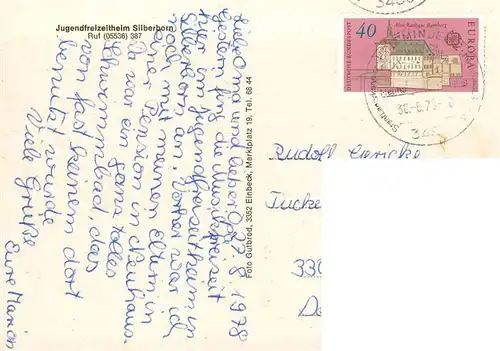 Jugendfreizeitheim Silberborn
Ruf (05536) 387
27. 8. 1978
Liebe Oma und lieber Opa
Gestern fing die Musikfreizeit
hier im Jugendfreizeitheim in
Silberborn an. Vorher war ich
noch mit meinen Eltern in
einer Pension in
Da war ein ganz tolles
Schwimmbad, das
von fast keinem dort
benutzt wurde
Viele Grüße
Eure Marion
Foto Gutbrod, 3352 Einbeck, Marktplatz 19, Tel. 68 44
40
Altes Rathaus Bamberg
DEUTSCHE BUNDESPOST
EUROPA
3450
30.-8.78-
345
Rudolf Gericke
Tucke
330